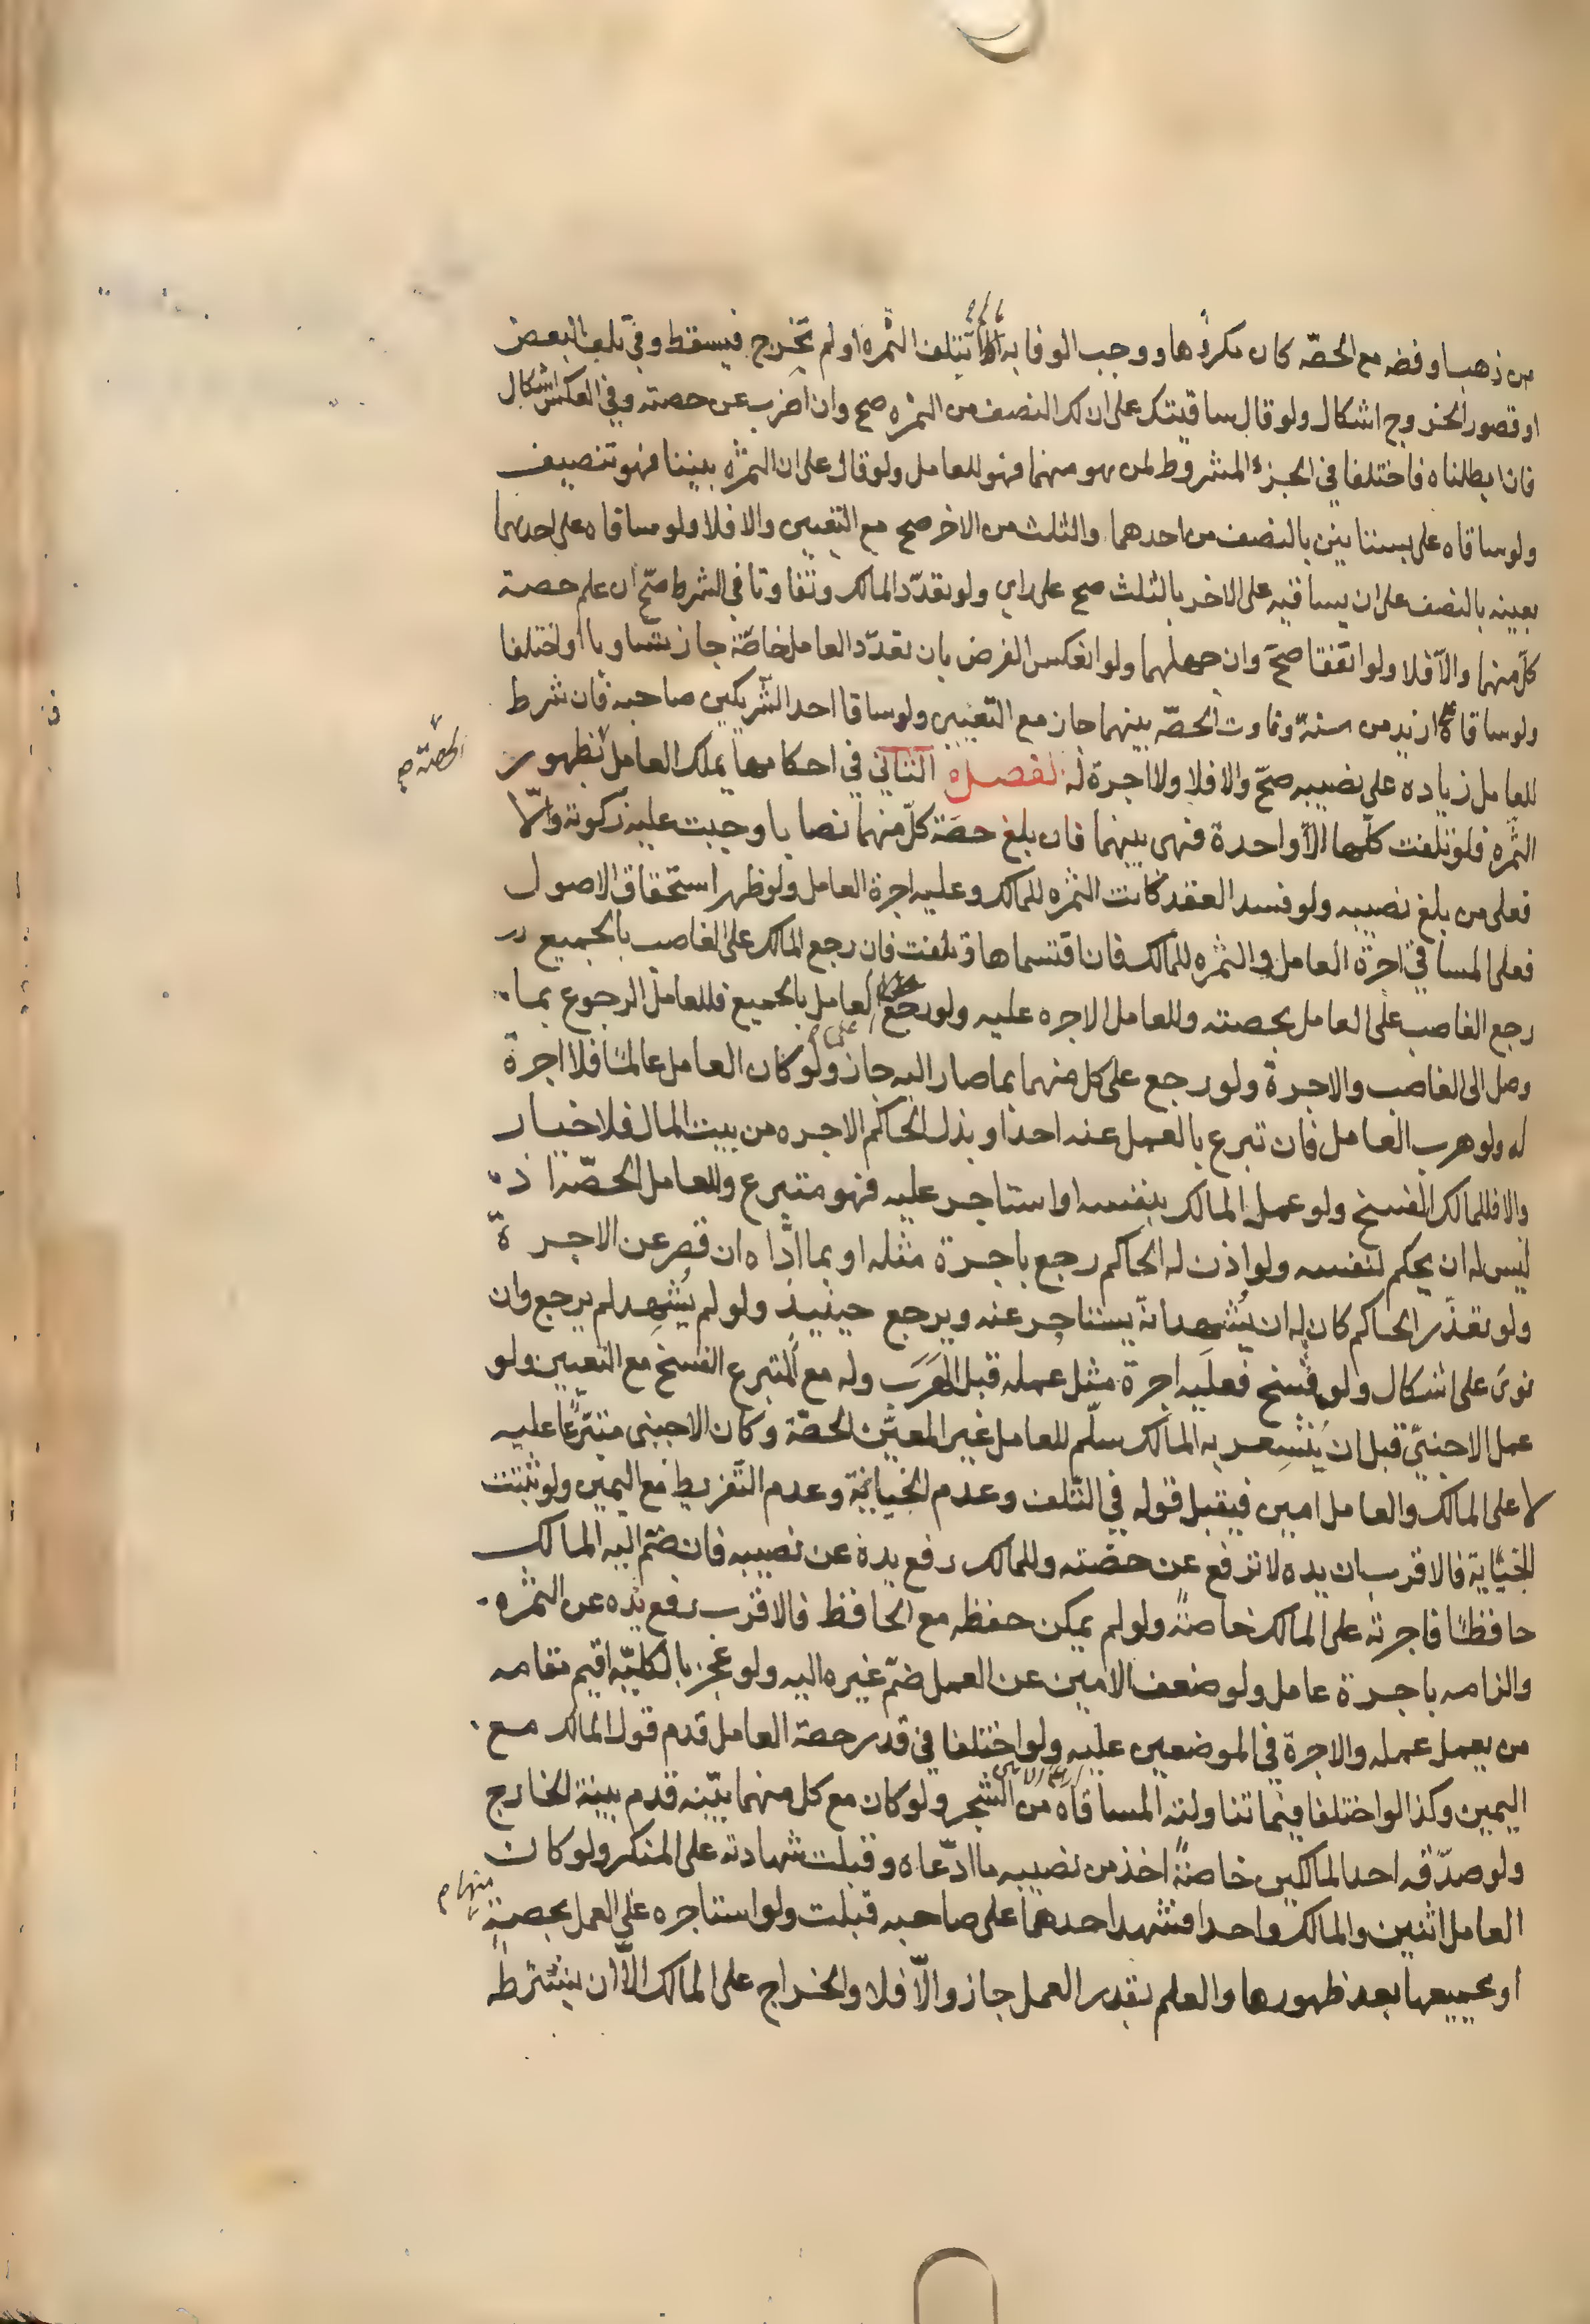 من ذهب او فضه مع الحصّه كان مكروها ووجب الوفا به الا ان تتلف الثمرة او لم تخرج فيسقط وفي تلف البعض
او قصور الخروج اشكال ولو قال ساقيتك على ان لك النصف من الثمره صح وان اضرب عن حصته وفي العكس اشكال
فان ابطلناه فاختلفا في الجزء المشروط لمن هو منهما فهو للعامل ولو قال على ان الثمره بيننا فهو تنصيف
ولو ساقاه على بستانين بالنصف من احدهما والثلث من الاخر صح مع التعيين والا فلا ولو ساقاه على احدهما
بعينه بالنصف على ان يساقيه على الاخر بالثلث صح على راي ولو تعدّد المالك وتفاوتا في الشرط صحّ ان علم حصة
كلّ منهما والّا فلا ولو اتفقتا صحّ وان جهلهما ولو انعكس الفرض بان تعدّد العامل خاصّة جاز تساويا او اختلفا
ولو ساقاه ازيد من سنة وتفاوت الحصّه بينهما جاز مع التعيين ولو ساقا احد الشريكين صاحبه فان شرط
للعامل زياده على نصيبه صحّ والا فلا ولا اجرة له الفصل الثاني في احكامها يملك العامل بظهور
الحصّة صح
الثمره فلو تلفت كلّها الّا واحدة فهى بينهما فان بلغ حصّة كلّ منهما نصابا وجبت عليه زكوته والّا
فعلى من بلغ نصيبه ولو فسد العقد كانت الثمره للمالك وعليه اجرة العامل ولو ظهر استحقاق الاصول
فعلى المساقي اجرة العامل والثمره للمالك فان اقتسماها وتلفت فان رجع المالك على الغاصب بالجميع
رجع الغاصب على العامل بحصته وللعامل الاجره عليه ولو رجع على العامل بالجميع فللعامل الرجوع بما
وصل الى الغاصب والاجرة ولو رجع على كل منهما بما صار اليه جاز ولو كان العامل عالما فلا اجرة
له ولو هرب العامل فان تبرع بالعمل عنه احد او بذل الحاكم الاجره من بيت المال فلا خيار
والا فللمالك الفسخ ولو عمل المالك بنفسه او استاجر عليه فهو متبرع وللعامل الحصّه اذ
ليس له ان يحكم لنفسه ولو اذن له الحاكم رجع باجرة مثله او بما ادّاه ان قصر عن الاجرة
ولو تعذّر الحاكم كان له ان يُشهد انّه يستاجر عنه ويرجع حينيذ ولو لم يُشهِد لم يرجع وان
نوى على اشكال ولو فسخ فعليه اجرة مثل عمله قبل الهَرَب وله مع المتبرع الفسخ مع التعيين ولو
عمل الاجنبيّ قبل ان يُشعِر به المالك سلّم للعامل غير المعيّن الحصّة وكان الاجنبى متبرّعا عليه
لا على المالك والعامل امين فيقبل قوله في التّلف وعدم الخيانة وعدم التّفريط مع اليمين ولو ثبتت
الخيانة فالاقرب ان يده لا ترفع عن حصّته وللمالك رفع يده عن نصيبه فان ضّم اليه المالك
حافظا فاجرته على المالك خاصّةً ولو لم يمكن حفظه مع الحافظ فالاقرب رفع يده عن الثمره
والزامه باجرة عامل ولو ضعف الامين عن العمل ضمّ غيره اليه ولو عجز بالكليّه اقيم مقامه
من يعمل عمله والاجرة في الموضعين عليه ولو اختلفا في قدر حصة العامل قدم قول المالك مع
اليمين وكذا لو اختلفا فيما تناولته المساقاة من الشجر ولو كان مع كل منهما بيّنه قدم بينة الخارج
ولو صدّقه احد المالكين خاصةً اخذ من نصيبه ما ادّعاه وقبلت شهادته على المنكر ولو كان
العامل اثنين والمالك واحدا فشهد احدهما على صاحبه قبلت ولو استاجره على العمل بحصة
منها صح
او بجميعها بعد ظهورها والعلم بقدر العمل جاز والّا فلا والخراج على المالك الّا ان يشترط